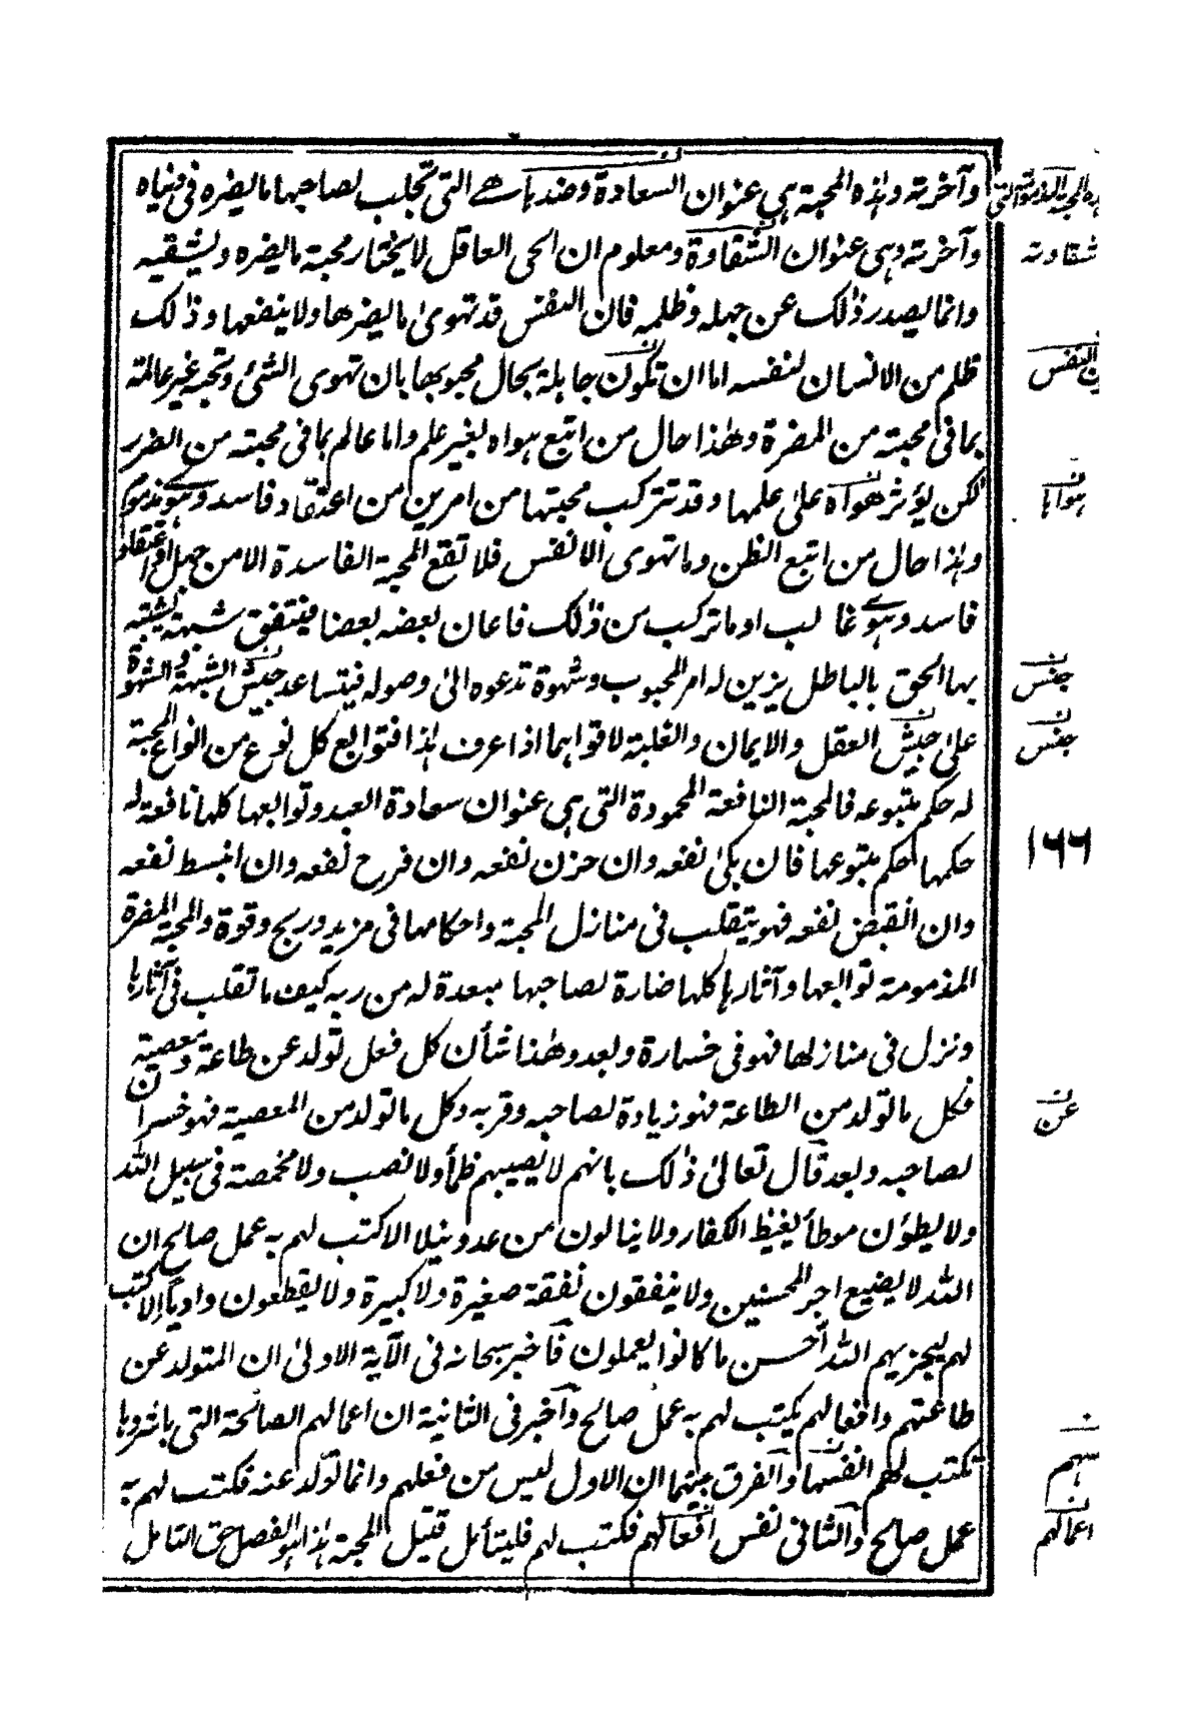 وآخرته وهذه المحبة هي عنوان السعادة وضدها هي التي تجلب لصاحبها ما يضره في دنياه
وآخرته وهي عنوان الشقاوة ومعلوم ان الحي العاقل لا يختار محبة ما يضره ويشقيه
وانما يصدر ذلك عن جهله وظلمه فان النفس قد تهوى ما يضرها ولا ينفعها وذلك
ظلم من الانسان لنفسه اما ان تكون جاهلة بحال محبوبها بان تهوى الشئ وتحبه غير عالمة
بما في محبته من المضرة وهذا حال من اتبع هواه بغير علم واما عالم بما في محبته من الضرر
لكن يؤثر هواه على علمها وقد تتركب محبتها من امرين من اعتقاد فاسد وهو مذموم
وهذا حال من اتبع الظن وما تهوى الانفس فلا تقع المحبة الفاسدة الا من جهل او اعتقاد
فاسد وهو غالب او ما تركب من ذلك فاعان بعضه بعضا فيتفق شبهة يشتبه
بها الحق بالباطل يزين له امر المحبوب وشهوة تدعوه الى وصوله فيتساعد جيش الشبهة والشهوة
على جيش العقل والايمان والغلبة لاقواهما اذا عرف هذا فتوابع كل نوع من انواع المحبة
له حكم متبوعه فالمحبة النافعة المحمودة التي هي عنوان سعادة العبد وتوابعها كلها نافعة له
حكمها حكم متبوعها فان بكى نفعه وان حزن نفعه وان فرح نفعه وان انبسط نفعه
وان انقبض نفعه فهو يتقلب في منازل المحبة واحكامها في مزيد وربح وقوة والمحبة المضرة
المذمومة توابعها وآثارها كلها ضارة لصاحبها مبعدة له من ربه كيف ما تقلب في آثارها
ونزل في منازلها فهو في خسارة وبعد وهذا شأن كل فعل تولد عن طاعة ومعصية
فكل ما تولد من الطاعة فهو زيادة لصاحبه وقربه وكل ما تولد من المعصية فهو خسران
لصاحبه وبعد قال تعالى ذلك بانهم لا يصيبهم ظمأ ولا نصب ولا مخمصة في سبيل الله
ولا يطؤن موطأ يغيظ الكفار ولا ينالون من عدو نيلا الا كتب لهم به عمل صالح ان
الله لا يضيع اجر المحسنين ولا ينفقون نفقة صغيرة ولا كبيرة ولا يقطعون واديا الا كتب
لهم ليجزيهم الله احسن ما كانوا يعملون فاخبر سبحانه في الآية الاولى ان المتولد عن
طاعتهم وافعالهم يكتب لهم به عمل صالح وآخبر في الثانية ان اعمالهم الصالحة التي باشروها
تكتب لهم انفسها والفرق بينهما ان الاول ليس من فعلهم وانما تولد عنه فكتب لهم به
عمل صالح والثاني نفس افعالهم فكتب لهم فليتأمل قتيل المحبة هذا الفصل حق التامل
شقاوته
النفس
هواها
جنس
جنس
١٦٦
عن
اعمالهم